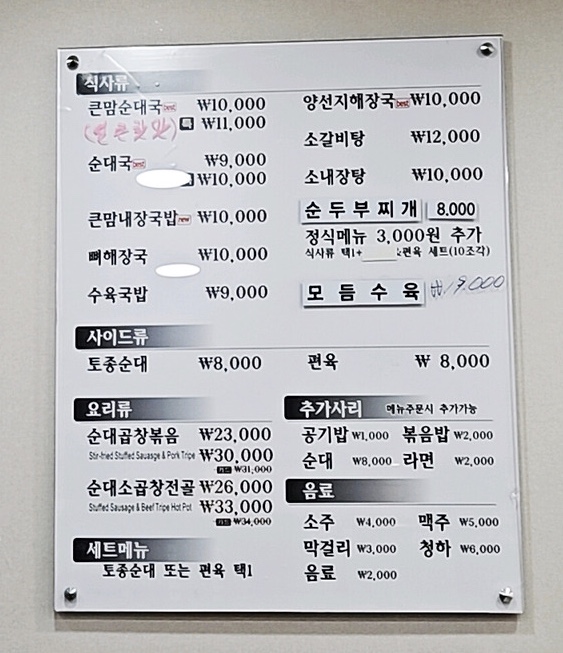 식사류
큰맘순대국 best ₩10,000
(얼큰한맛) 특 ₩11,000
순대국 best ₩9,000
₩10,000
큰맘내장국밥 new ₩10,000
뼈해장국 ₩10,000
수육국밥 ₩9,000
양선지해장국 best ₩10,000
소갈비탕 ₩12,000
소내장탕 ₩10,000
순두부찌개 8.000
정식메뉴 3,000원 추가
식사류 택1+ &편육 세트(10조각)
모듬수육 ₩19.000
사이드류
토종순대 ₩8,000
편육 ₩ 8,000
요리류
순대곱창볶음 ₩23,000
Stir-fried Stuffed Sauasge & Pork Tripe ₩30,000
카드 ₩31,000
순대소곱창전골 ₩26,000
Stuffed Sausage & Beef Tripe Hot Pot ₩33,000
카드 ₩34,000
세트메뉴
토종순대 또는 편육 택1
추가사리 메뉴주문시 추가가능
공기밥 ₩1,000 볶음밥 ₩2,000
순대 ₩8,000 라면 ₩2,000
음료
소주 ₩4,000 맥주 ₩5,000
막걸리 ₩3,000 청하 ₩6,000
음료 ₩2,000